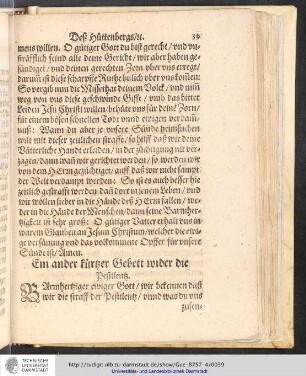 Deß Hüttenbergs/ꝛc. 39
mens willen. O gütiger Gott du bist gerecht/ vnd vn-
sträfflich seind alle deine Gericht/ wir aber haben ge-
sündiget/ vnd deinen gerechten Zorn vber vns erregt/
darumb ist diese scharpffe Ruthe billich vber vns kom̃en:
So vergib nun die Missethat deinem Volck/ vnd nim̃
weg von vns diese geschwinde Gifft/ vmb das bitter
Leiden Jesu Christi willen/ behüte vns für deine Zorn/
für einem bösen schnellen Todt vnnd ewigen verdam̃-
nuß: Wann du aber je vnsere Sünde heimsuchen
wilt mit dieser zeitlichen straffe/ so hilff daß wir deine
Vätterliche Hand erleiden/ in der züchtigung nit ver-
zagen/ dann wann wir gerichtet werden/ so werden wir
von dem HErrn gezüchtiget/ auff daß wir nicht sampt
der Welt verdampt werden: So ist es auch besser hie
zeitlich gestrafft werden dann dort in jenem Leben/ vnd
wir wöllen lieber in die Hände deß HErrn fallen/ we-
der in die Hände der Menschen/ dann seine Barmher-
tzigkeit ist sehr groß: O gütiger Vatter erhalt vns in
warem Glauben an Jesum Christum/ welcher die ewi-
ge versünung vnd das volkommene Opffer für vnsere
Sünde ist/ Amen.
Ein ander kürtzer Gebett wider die
Pestilentz.
BArmhertziger ewiger Gott/ wir bekennen daß
wir die straff der Pestilentz/ vnnd was du vns
zusen-
TECHNISCHE UNIVERSITÄT DARMSTADT
http://tudigit.ulb.tu-darmstadt.de/show/Gue-8757-4/0039
Universitäts- und Landesbibliothek Darmstadt